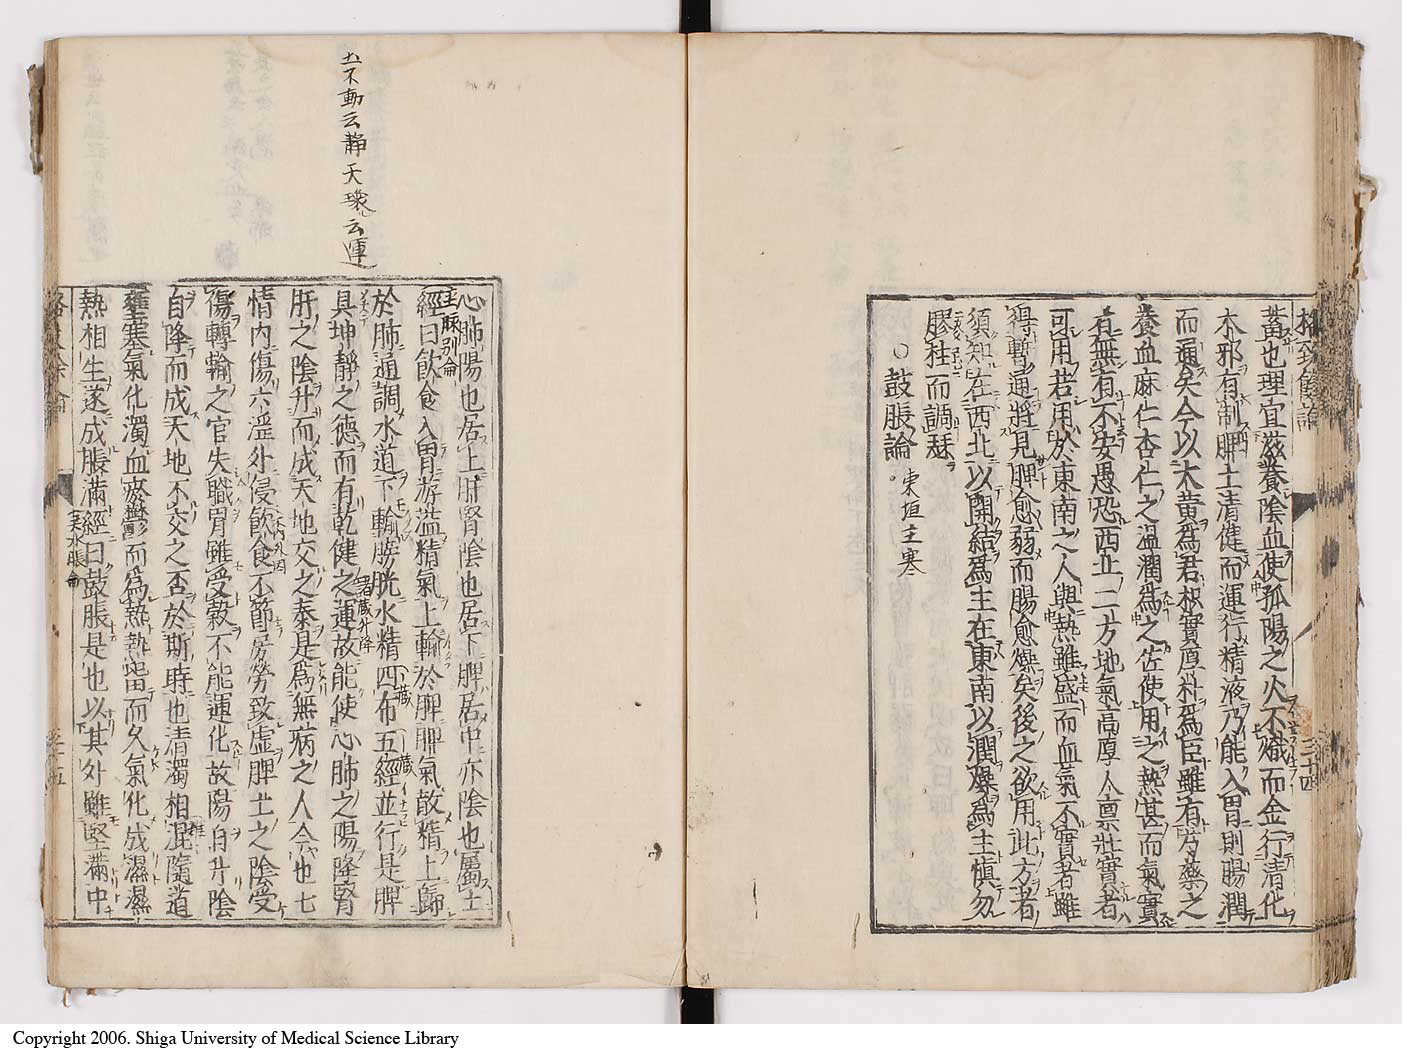 格致餘論
三十四
蓄也理宜滋養陰血使孤陽之火不熾而金行清化
木邪有制脾土清健而運行精液乃能入胃則腸潤
而通矣今以大黃為君枳實厚朴為臣雖有芍藥之
養血麻仁杏仁之温潤為之佐使用之熱甚而氣實
者無有不安愚恐西北二方地氣高厚人禀壯實者
可用若用於東南之人與熱雖盛而血氣不實者雖
得暫通將見脾愈弱而腸愈燥矣後之欲用此方者
須知在西北以開結為主在東南以潤燥為主慎勿
膠柱而調瑟
○鼓脹論 東垣主寒
土不動云静天環云運
心肺陽也居上肝腎陰也居下脾居中亦陰也屬土
經曰飲食入胃游溢精氣上輸於脾脾氣散精上歸
於肺通調水道下輸膀胱水精四布五經並行是脾
具坤靜之德而有乾健之運故能使心肺之陽降腎
肝之陰升而成天地交之泰是為無病之人今也七
情內傷六淫外侵飲食不節房勞致虛脾土之陰受
傷轉輸之官失職胃雖受穀不能運化故陽自升陰
自降而成天地不交之否於斯時也清濁相混隧道
壅塞氣化濁血瘀鬱而為熱熱留而久氣化成濕濕
熱相生遂成脹滿經曰鼓脹是也以其外雖堅滿中
Copyright 2006. Shiga University of Medical Science Library